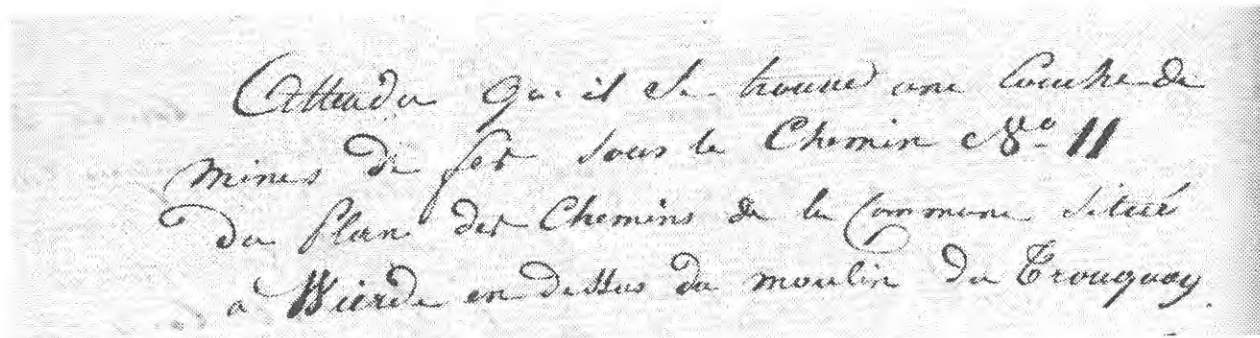 Attendu qu'il se trouve une Couche de
mines de fer sous le Chemin N.o 11
du plan des Chemins de la Commune situé
à Wierde en dessus du moulin du Trouquoy.